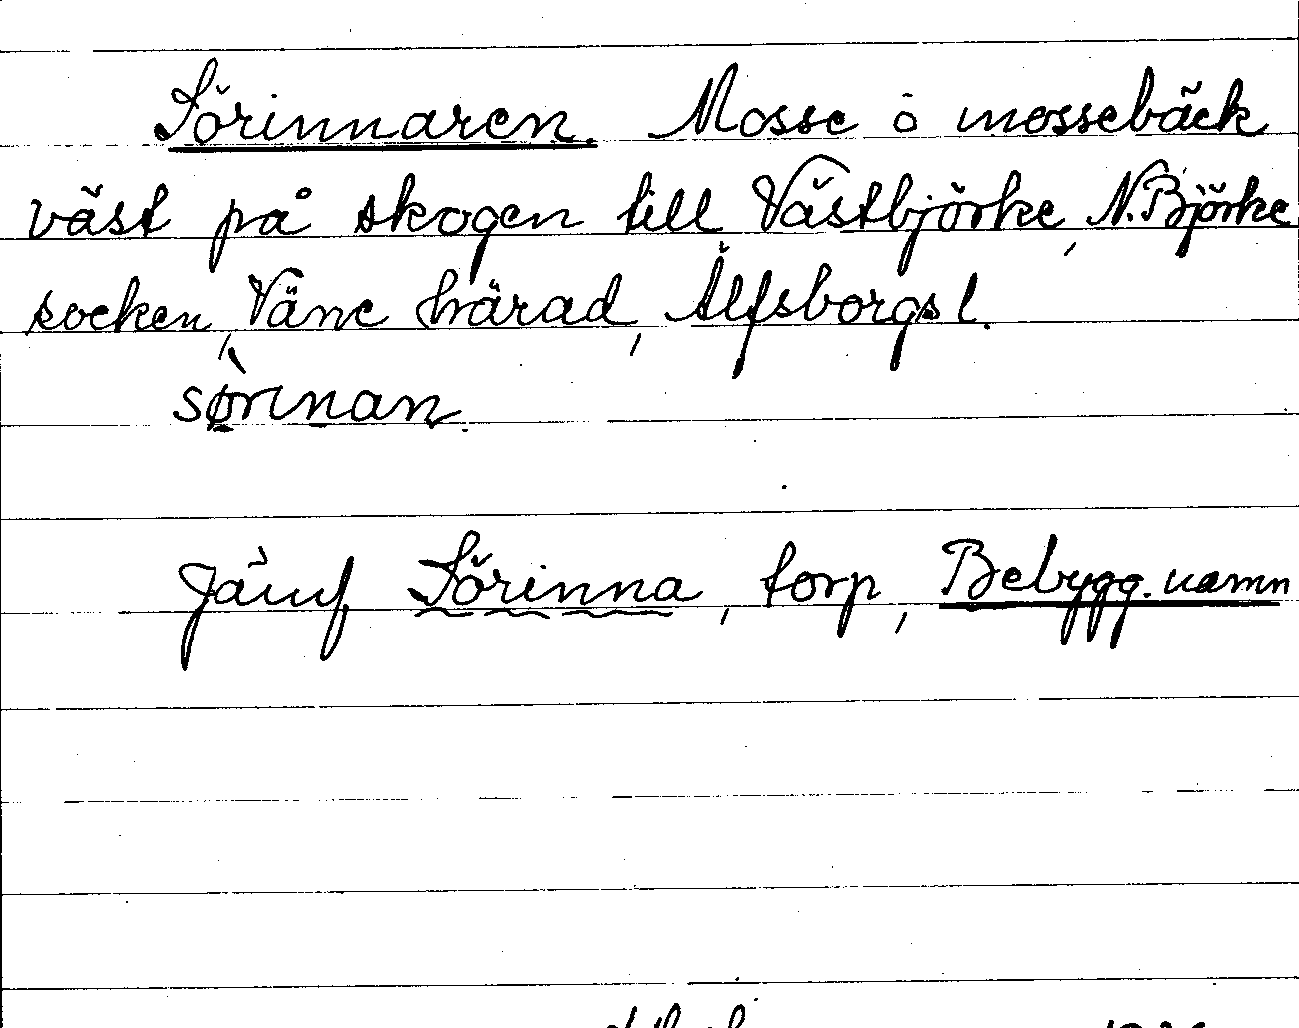 Sörinnaren. Mosse ö mossebäck
väst på skogen till Västbjörke, N. Björke
socken, Väne härad, Älfsborgs l.
sø̀rınan.
Jämf. Sörinna, torp, Bebygg.namn